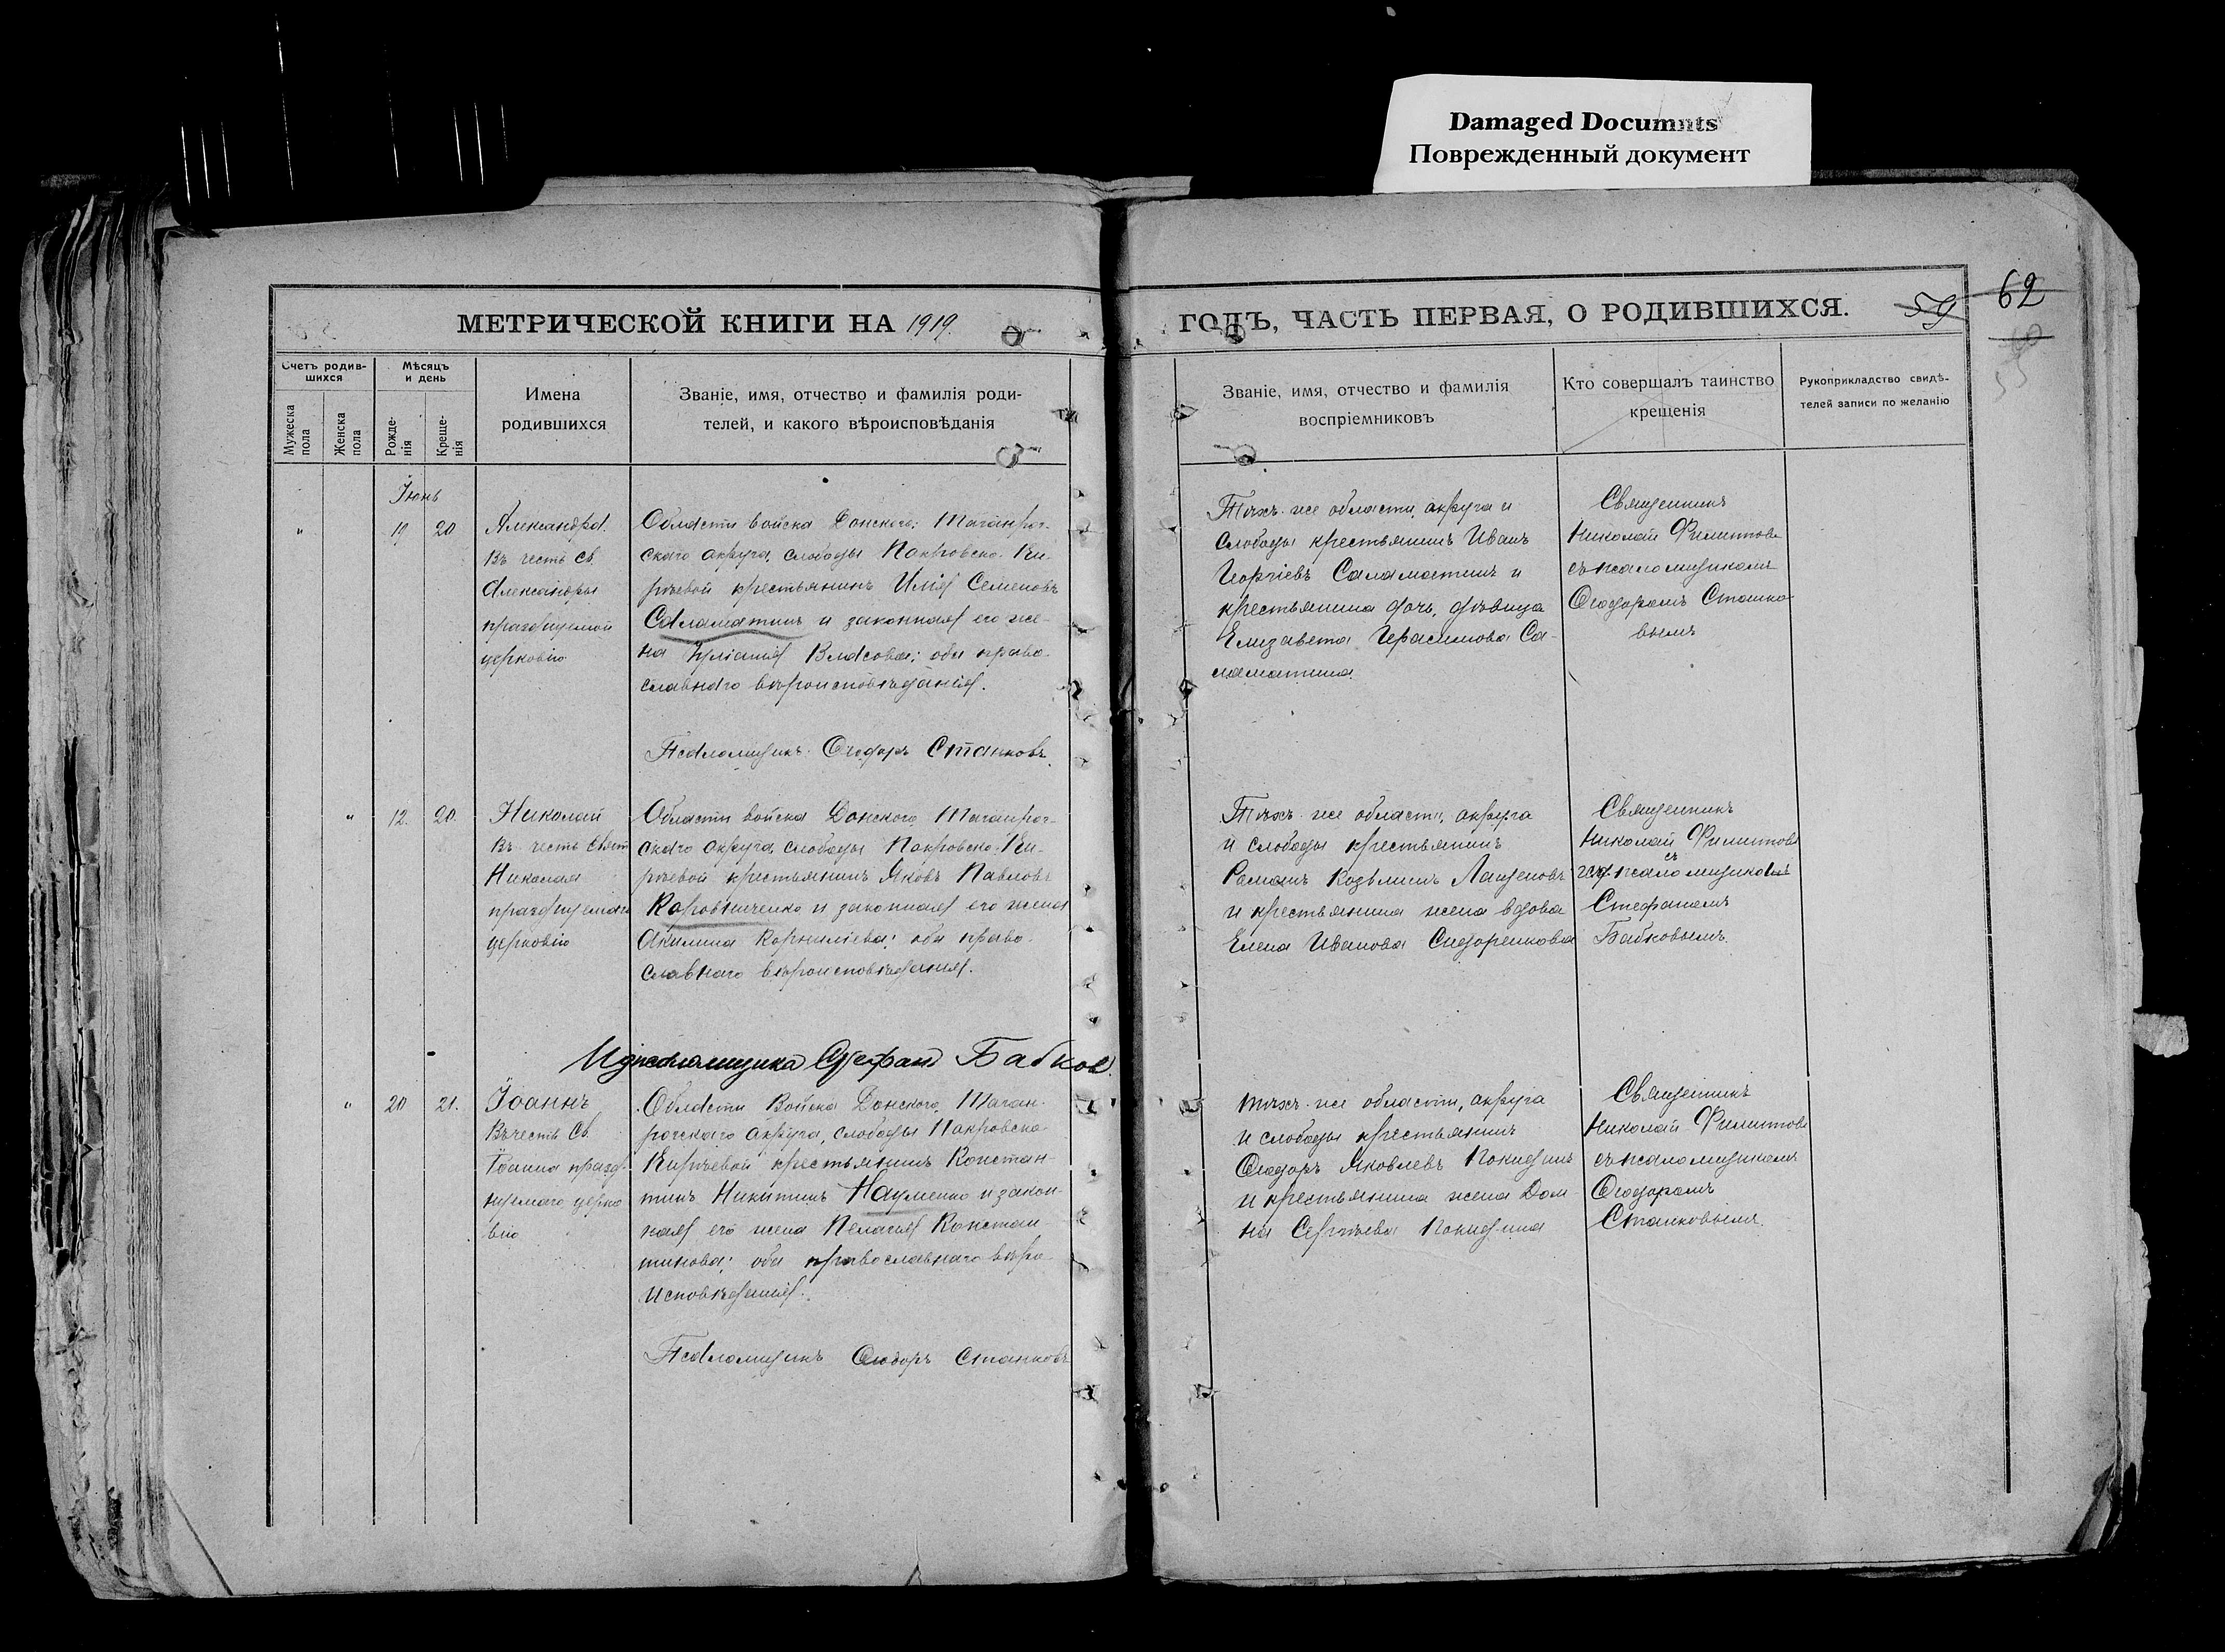 Damaged Documnts
Поврежденный документ
МЕТРИЧЕСКОЙ КНИГИ НА 1919.
ГОДЪ, ЧАСТЬ ПЕРВАЯ, О РОДИВШИХСЯ.
59
62
Счетъ родив-
шихся
Мѣсяцъ
и день
Мужеска
пола
Женска
пола
Рожде-
нія
Креще-
нія
Имена
родившихся
Званіе, имя, отчество и фамилія роди-
телей, и какого вѣроисповѣданія
Званіе, имя, отчество и фамилія
воспріемниковъ
Кто совершалъ таинство
крещенія
Рукоприкладство свидѣ-
телей записи по желанію
Іюнь
" 19 20
Александра.
Въ честь Св.
Александры
празднуемой
церковію
Области войска Донского: Таганрог-
скаго округа, слободы Покровско-Ки-
рѣевой крестьянинъ Илія Семеновъ
Саламатинъ и законная его же-
на Іуліанія Власова; оба право-
славнаго вѣроисповѣданія.
Псаломщикъ Ѳеодоръ Станковъ.
Тѣхъ-же области, округа и
слободы крестьянинъ Иванъ
Георгіевъ Саламатинъ и
крестьянина дочь, дѣвица
Елизавета Герасимова Са-
ламатина.
Священникъ
Николай Филипповъ
съ псаломщикомъ
Ѳеодоромъ Станко-
вымъ
" 12. 20.
Николай
Въ честь Свят.
Николая
празднуемаго
церковію
Области войска Донского Таганрог-
скаго округа, слободы Покровско-Ки-
рѣевой крестьянинъ Яковъ Павловъ
Коровниченко и законная его жена
Акилина Корниліева; оба право-
славнаго вѣроисповѣданія.
И д псаломщика Стефанъ Бабков.
Тѣхъ-же области, округа
и слободы крестьянинъ
Романъ Лащеновъ
и крестьянина жена вдова
Елена Иванова Сидоренкова
Священникъ
Николай Филипповъ
съ
псаломщикомъ
Стефаномъ
Бабковымъ.
" 20 21.
Іоаннъ
Въ честь Св.
Іоанна празд-
нуемаго церко
вію
Области Войска Донского, Таган-
рогскаго округа, слободы Покровско-
Кирѣевой крестьянинъ Констан-
тинъ Никитинъ Науменко и закон-
ная его жена Пелагія Констан-
тинова; оба православнаго вѣро-
исповѣданія.
Псаломщикъ Ѳеодоръ Станковъ
тѣхъ-же области, округа
и слободы крестьянинъ
Ѳеодоръ Яковлевъ Покидинъ
и крестьянина жена Дом-
на Сергѣева Покидина
Священникъ
Николай Филипповъ
съ псаломщикомъ
Ѳеодоромъ
Станковымъ.